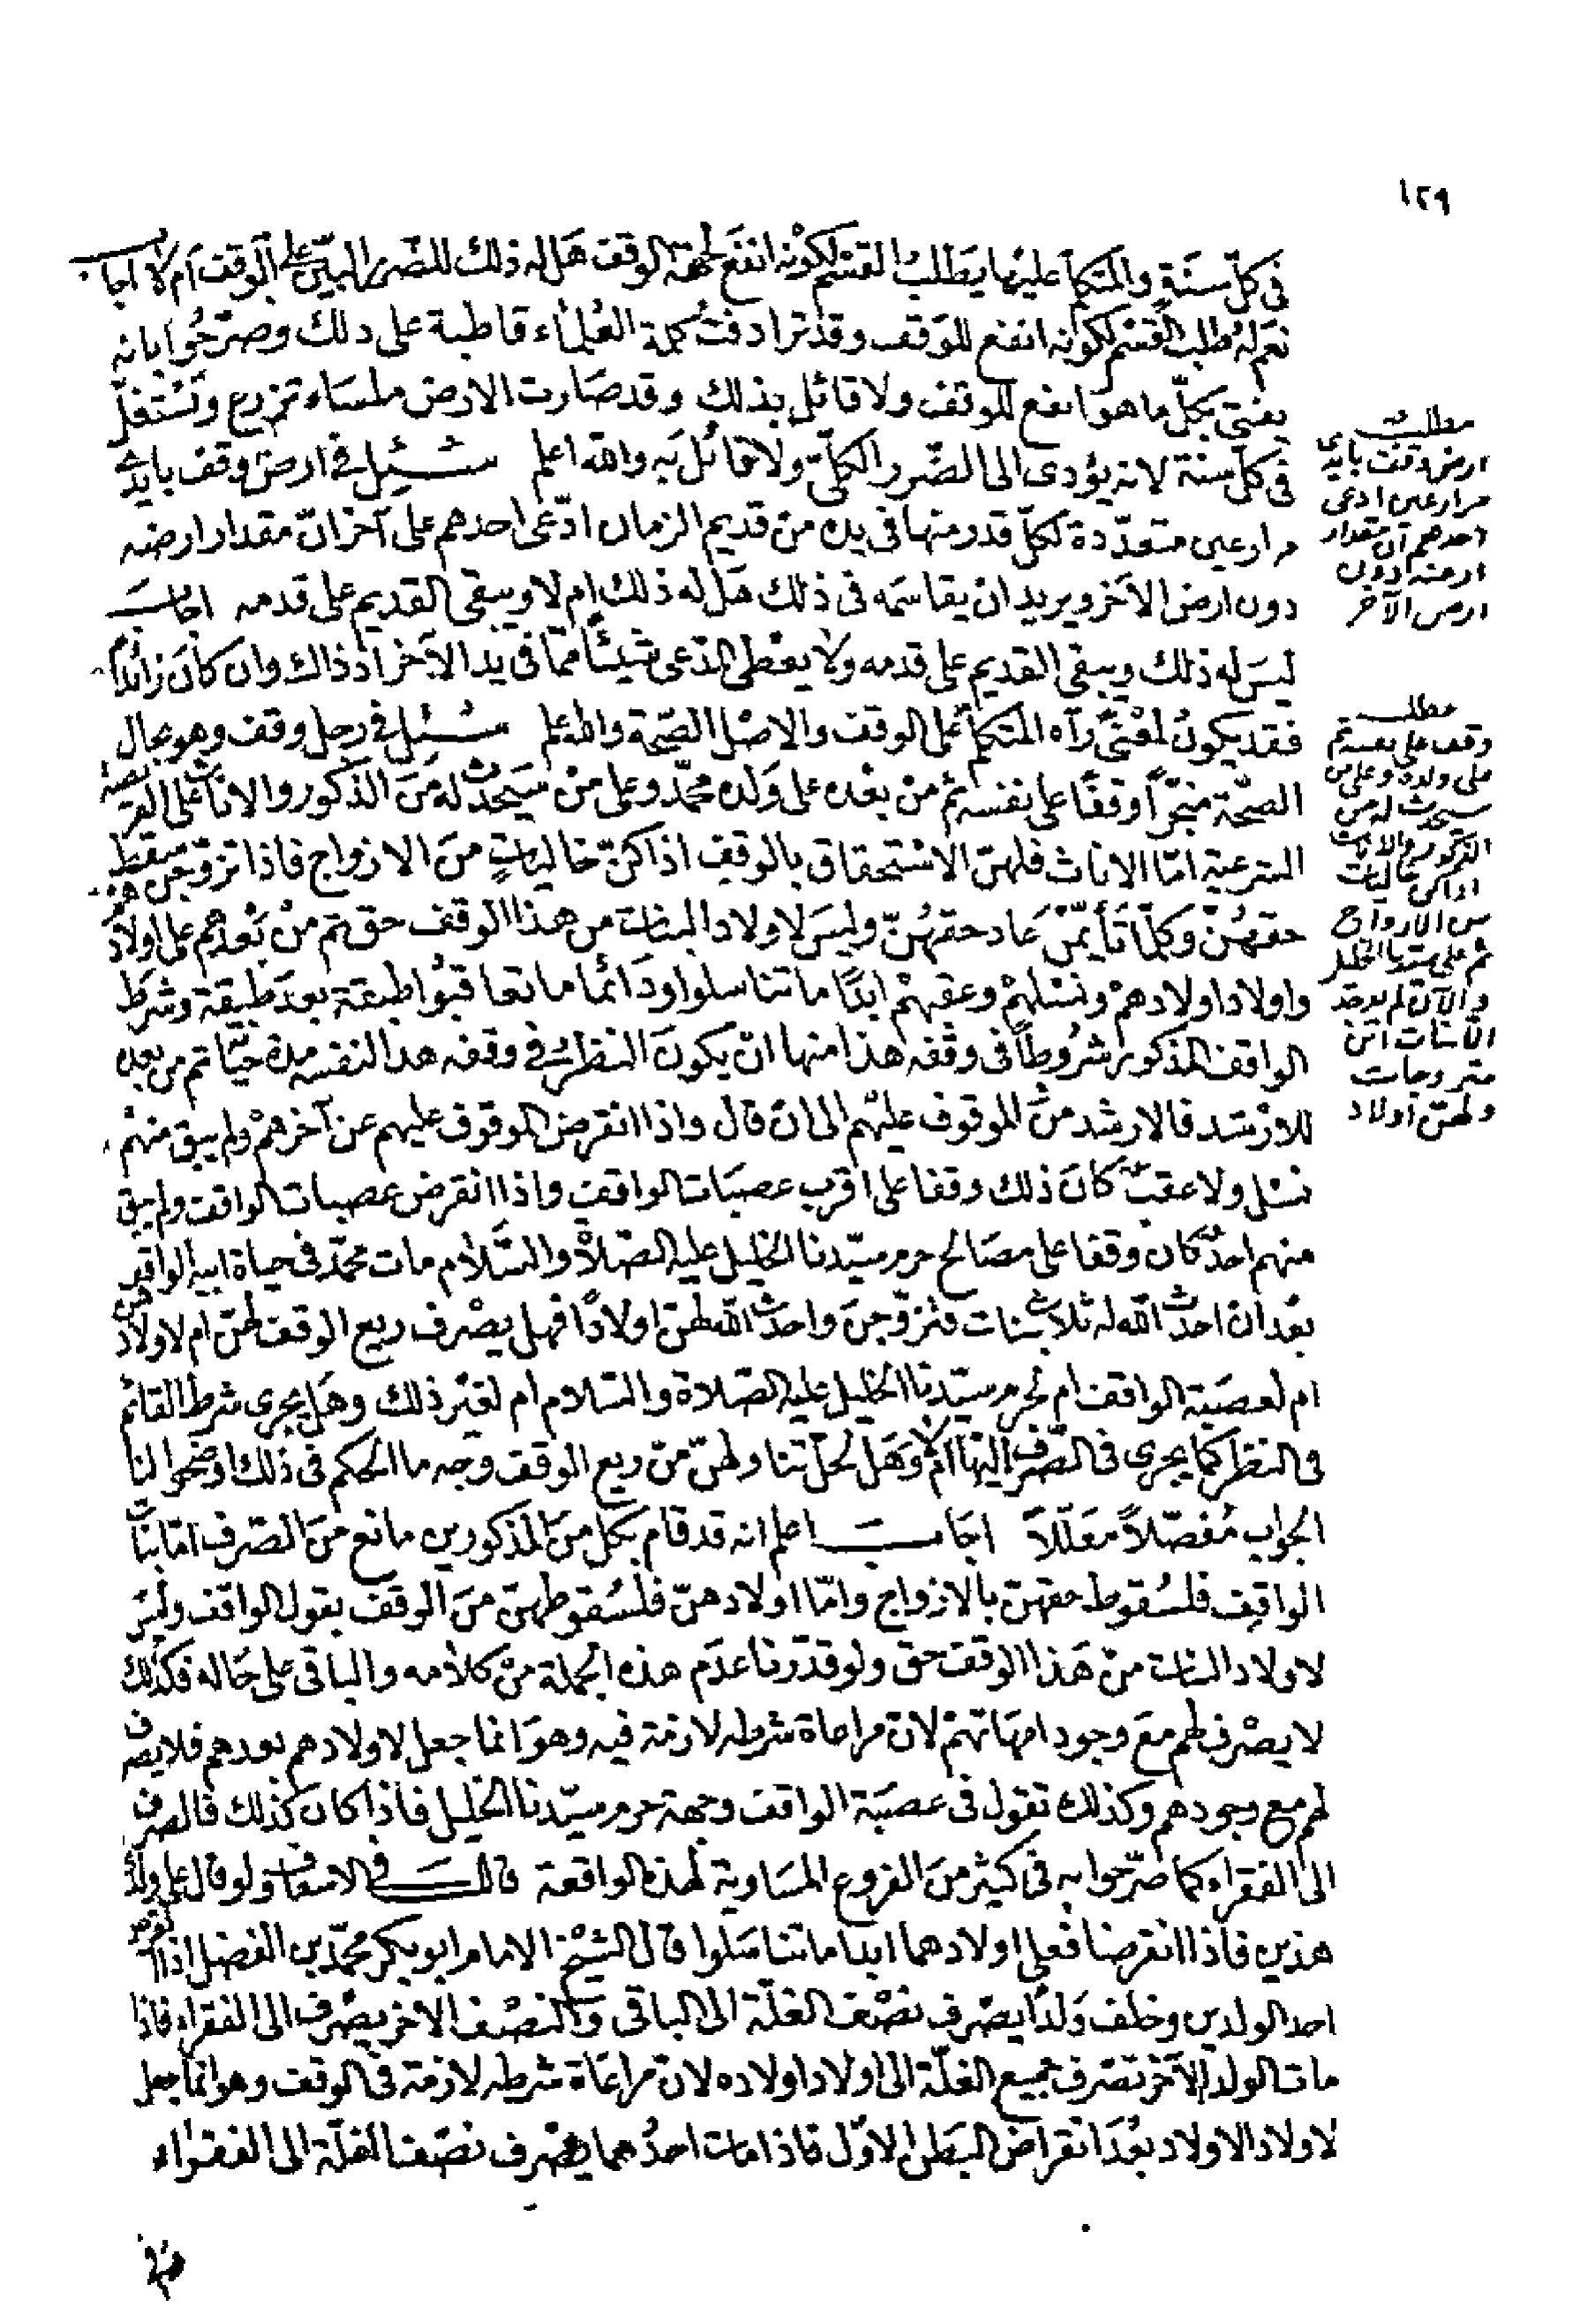 ١٢٩
في كلّ سنَة والمتكلم عليها يَطلبُ القسَم لكونه انفَع لجهة الوقف هَل له ذلك للضّرر البيّن على الوقف اَم لا اجاب
نعَم لهُ طلب القسْم لكونه انفع للوَقف وقد ترادفتْ كلمة العُلماء قاطبة على ذلك وصرّحُوا بانه
يفتى بكلّ ما هوَ انفع للوقف ولا قائل بذلك وقد صَارت الارض ملسَاء تزرع وتُسْتغلّ
في كلّ سنة لانه يؤدى الى الضّرر الكلّيّ ولا قائل به والله اعلم سُئِل في ارض وقف بايدى
مزارعين متعدّدة لكلّ قدر منها في يده من قديم الزمان ادّعى احدهم على آخر انّ مقدار ارضه
دون ارض الآخر ويريد ان يقاسمَه في ذلك هَل له ذلك ام لا ويبقى القديم على قدمه اجاب
ليسَ له ذلك ويبقى القديم على قدمه ولا يعْطى المدّعى شيئًا ممّا في يد الآخر اذ ذاك وان كانَ زائدًا
فقد يكونُ لمعْنًى رآه المتكلم على الوقف والاصْل الصّحة والله اعلم سُئِل في رجل وقف وهو بحال
الصحّة منجّزًا وقفًا على نفسه ثم من بعْده على وَلده محمّد وعلى من سَيَحدُث له منَ الذكور والاناث على الفريضة
الشرعية امّا الاناث فلهنّ الاسْتحقاق بالوقف اذا كنّ خاليات منَ الازواج فاذا تزوجن سقط
حقهُنّ وكلّما تأيّمْن عَاد حقهُنّ وليسَ لاولاد البنات من هذا الوقف حق ثم منْ بَعْدهم على اولادهم
واولاد اولادهمْ ونسْلهمْ وعقبهمْ ابدًا ما تناسلوا ودَائمًا ما تعاقبُوا طبقة بعدَ طبقة وشرَط
الواقف المذكور شرُوطًا في وقفه هذا منها ان يكونَ النظر في وقفه هذا لنفسه مدة حيَاته ثم من بعده
للارْشد فالارشد منَ الموقوف عليْهم الى ان قال واذا انقرضَ الموقوف عليهم عن آخرهمْ ولم يبق منهمْ
نسْل ولا عقبٌ كانَ ذلك وقفا على اقرب عصبَات الواقف واذا انقرض عصبات الواقف ولم يبق
منهم احدٌ كان وقفا على مصَالح حرم سيّدنا الخليل عليه الصّلاة والسَّلام مات محمّد في حياة ابيه الواقف
بعْد ان احدث الله له ثلاث بنات فتزوّجنَ واحدث الله لهنّ اولادًا فهل يصْرف ريع الوقف لهنّ ام لاولادهن
ام لعصَبَة الواقف ام لحرم سيّدنا الخليل عليه الصّلاة والسّلام ام لغيْر ذلك وهَل يجرى شرط القائم
في النظر كما يجرى في الصّرف اليها ام لا وهَل لحلّ تناولهنّ منْ ريع الوقف وجه ما الحكم في ذلك اوضحوا لنا
الجواب مُفصّلاً معَلّلاً اجاب اعلم انه قد قام بكل منَ المذكورين مانع منَ الصّرف امّا بنات
الواقِف فلسُقوط حقهنّ بالازواج وامّا اولادهنّ فلسُقوطهنّ منَ الوقف بقول الواقف وليسَ
لاولاد البنات منْ هَذا الوقف حقّ ولو قدّرنا عدَم هذه الجملة منْ كلامه والباقى على حَاله فكذلك
لا يصْرف لهم معَ وجود امهَاتهمْ لانّ مراعاة شرطه لازمة فيه وهوَ انما جعل لاولادهم بعدهم فلا يصرف
لهم مع وجودهم وكذلك نقول في عصَبَة الواقف وجهة حرم سيّدنا الخليل فاذا كان كذلك فالصرف
الى الفقراء كما صرّحوا به في كثير منَ الفروع المسَاوية لهذه الواقعة قال في الاسعاف ولو قال على ولدىّ
هذين فاذا انقرضا فعلى اولادهما ابدا ما تناسَلوا قال الشيْخ الامام ابو بكر محمّد بن الفضل اذا انقرض
احد الولدين وخلف وَلدًا يصرف نصْف الغلّة الى الباقى والنصْف الآخر يصْرف الى الفقراء فاذا
مات الولد الآخر تصْرف جميع الغلّة الى اولاد اولاده لانّ مراعَاة شرطه لازمة في الوقف وهو انما جعل
لاولاد الاولاد بعْدَ انقراض البَطن الاوّل فاذا مات احدُهما يصْرف نصْف الغلّة الى الفقراء
مطلب
ارض وقف بايدى
مزارعين ادعى
احدهم ان مقدار
ارضه دون
ارض الآخر
مطلب
وقف على نفسه ثم
على ولده وعلى من
سيحدث له من
الذكور والاناث
اذا كن خاليات
من الازواج
ثم على سيدنا الخليل
والآن لم يوجد
الا بنات ابن
متزوجات
ولهن اولاد